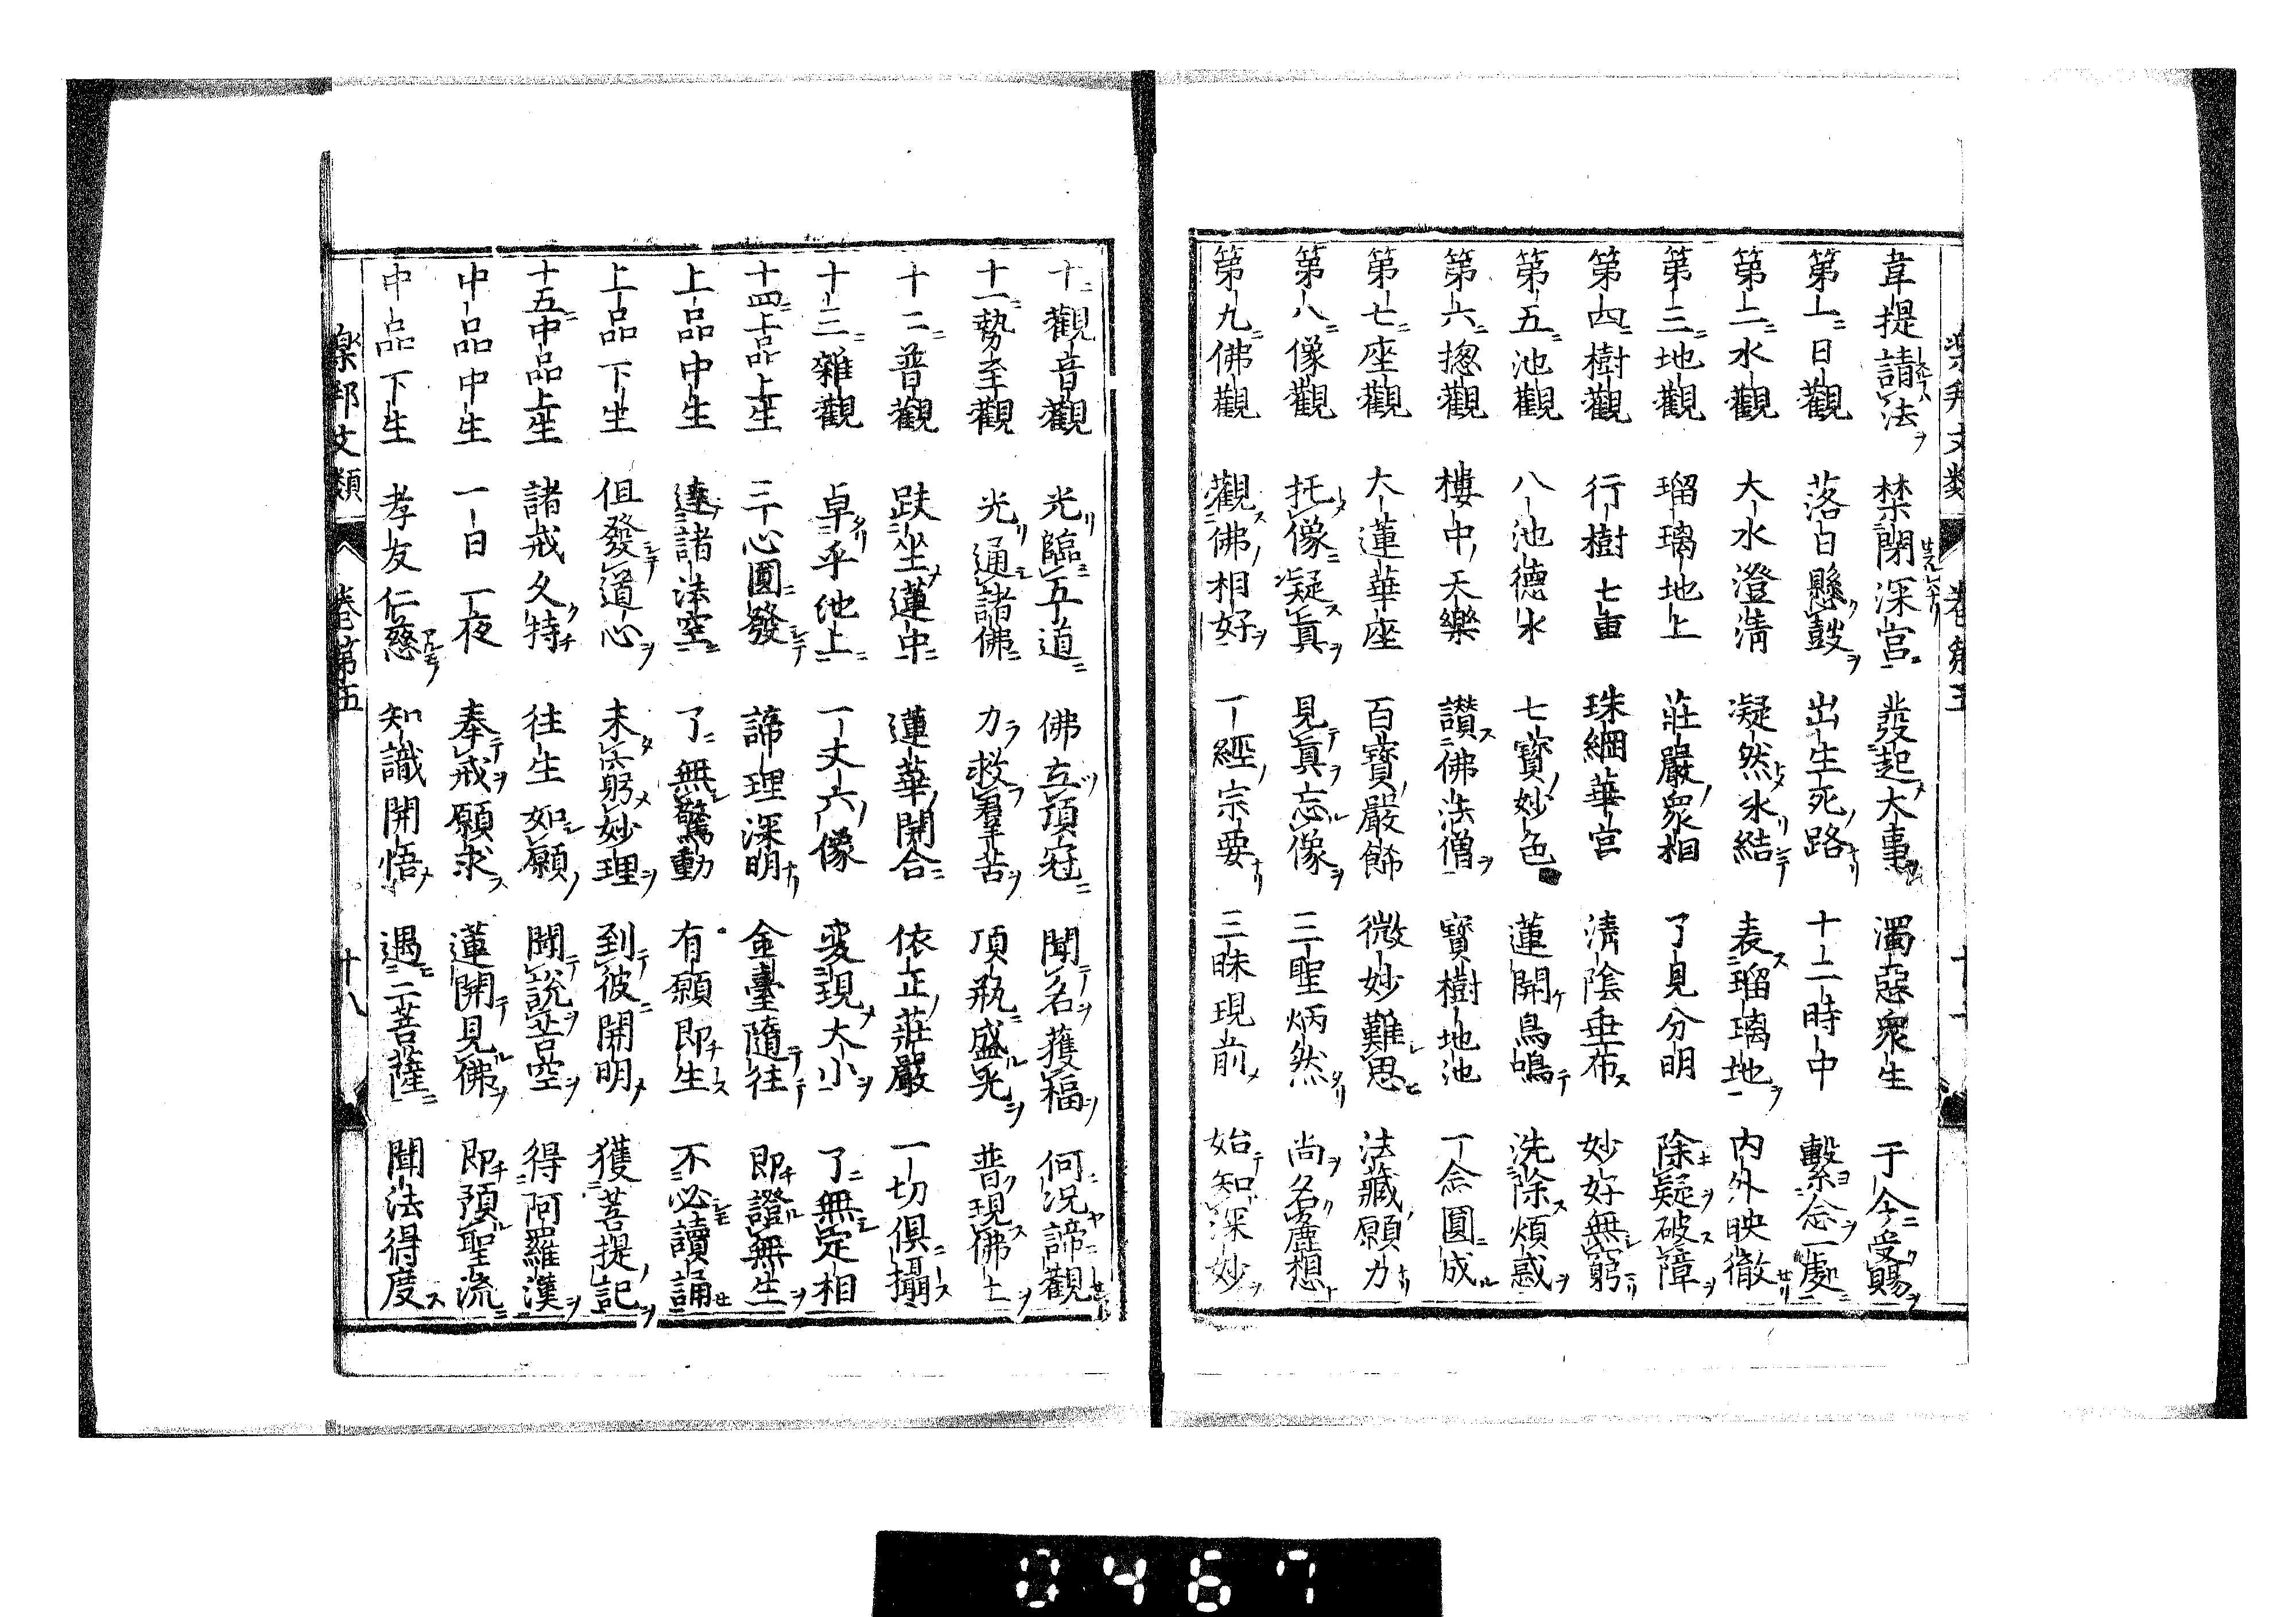 韋提請法 禁閉深宮 發起大事 濁惡衆生 于今受賜
第一日觀 落日懸鼓 出生死路 十二時中 繫念一處
第二水觀 大水澄淸 凝然氷結 表瑠璃地 内外映徹
第三地觀 瑠璃地上 莊嚴衆相 了見分明 除疑破障
第四樹觀 行樹七重 珠網華宮 淸陰垂布 妙好無窮
第五池觀 八池德水 七寶妙色 蓮開鳥鳴 洗除煩惑
第六揔觀 樓中天樂 讃佛法僧 寶樹地池 一念圓成
第七座觀 大蓮華座 百寶嚴飾 微妙難思 法藏願力
第八像觀 托像凝眞 見眞忘像 三聖炳然 尚名麁想
第九佛觀 觀佛相好 一經宗要 三昧現前 始知深妙
十觀音觀 光臨五道 佛立頂冠 聞名獲福 何況諦觀
十一勢至觀 光通諸佛 力救羣苦 頂瓶盛光 普現佛土
十二普觀 趺坐蓮中 蓮華開合 依正莊嚴 一切俱攝
十三雜觀 卓乎池上 一丈六像 變現大小 了無定相
十四上品上生 三心圓發 諦理深明 金臺隨往 即證無生
上品中生 達諸法空 了無驚動 有願即生 不必讀誦
上品下生 但發道心 未窮妙理 到彼開明 獲菩提記
十五中品上生 諸戒久持 往生如願 聞說苦空 得阿羅漢
中品中生 一日一夜 奉戒願求 蓮開見佛 即預聖流
中品下生 孝友仁慈 知識開悟 遇二菩薩 聞法得度
樂邦文類 卷第五 十八
0467